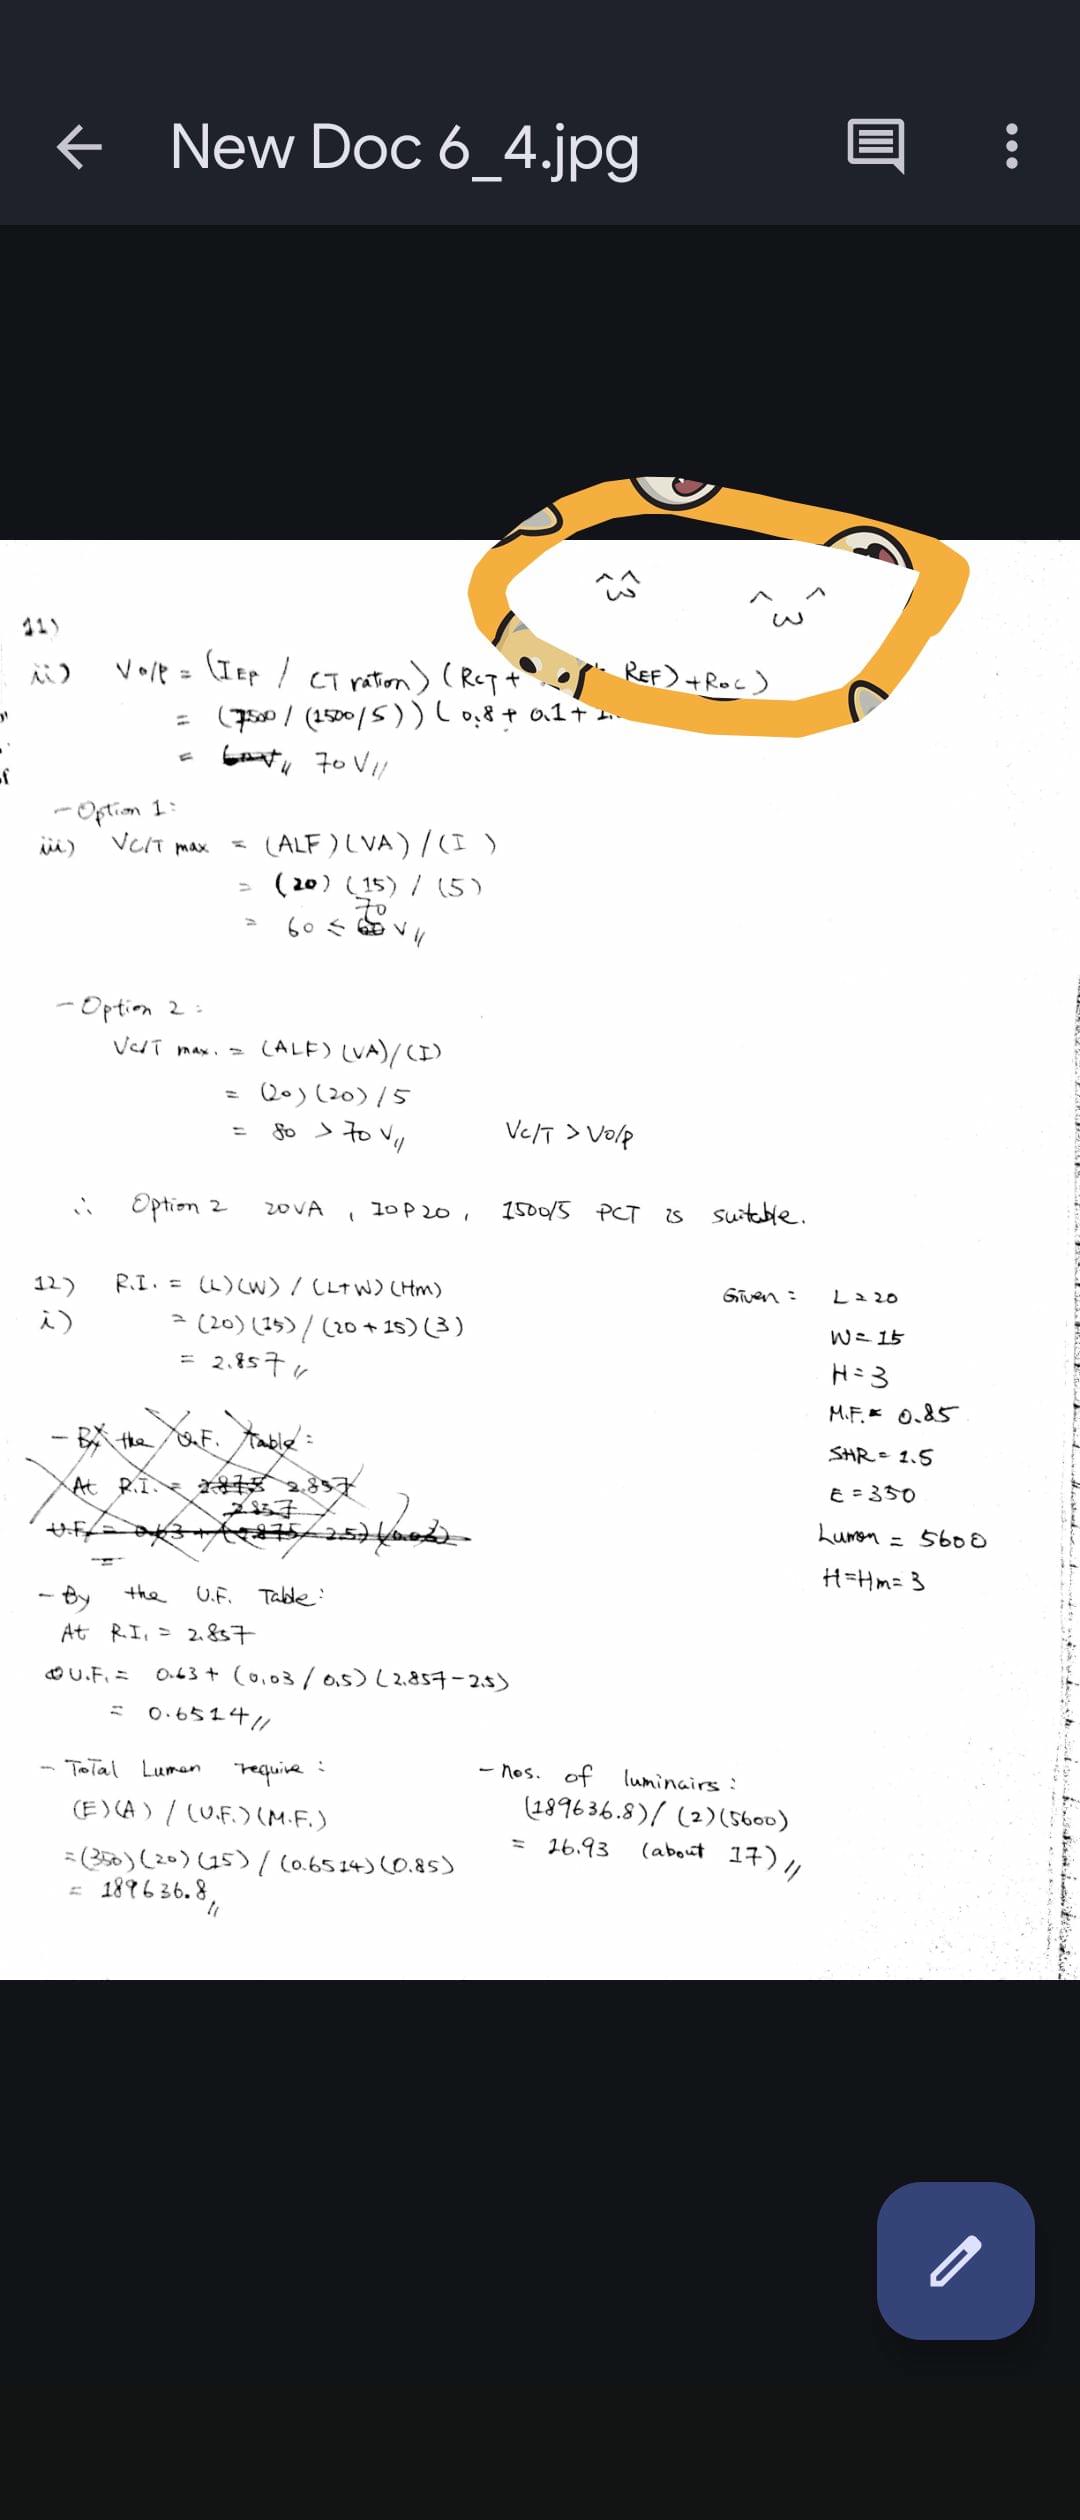 New Doc 6_4.jpg
^ω^ ^ω^
11)
ii) Vo/p = (IEp / CT ration) (RCT + REF) + ROC)
= (7500 / (1500/5)) (0.8 + 0.1 +
= 70 V//
- Option 1:
iii) VC/T max = (ALF)(VA) / (I )
= (20) (15) / (5)
= 60 ≤ 70 V//
- Option 2 :
VC/T max. = (ALF) (VA)/(I)
= (20)(20) / 5
= 80 > 70 V// VC/T > Vo/p
∴ Option 2 20VA , 10P20, 1500/5 PCT is suitable.
12) R.I. = (L)(W) / (L+W)(Hm)
i) = (20)(15) / (20+15)(3)
= 2.857 //
Given : L = 20
W = 15
H = 3
M.F. = 0.85
SHR = 1.5
E = 350
Lumen = 5600
H = Hm = 3
- By the U.F. Table :
At R.I. = 2.875 2.857
2.857
- By the U.F. Table :
At R.I. = 2.857
U.F. = 0.63 + (0.03 / 0.5) (2.857 - 2.5)
= 0.6514 //
- Total Lumen require :
(E)(A) / (U.F.)(M.F.)
= (350)(20)(15) / (0.6514)(0.85)
= 189636.8 //
- nos. of luminairs :
(189636.8) / (2)(5600)
= 16.93 (about 17) //